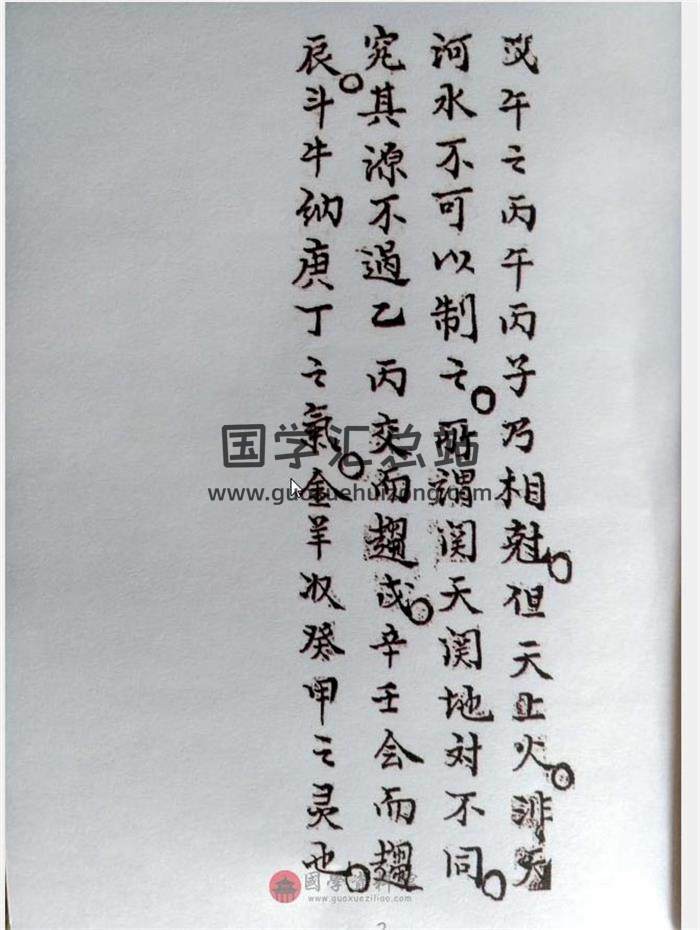 午之丙午丙子乃相尅。但天上火。非天
河水不可以制之。所謂関天関地对不同。
究其源不過乙丙交而趨戌。辛壬会而趨
辰。斗牛纳庚丁之氣。金羊收癸甲之灵也。
国学汇总站
www.guoxuehuizong.com
國學資料
www.guoxueziliao.com